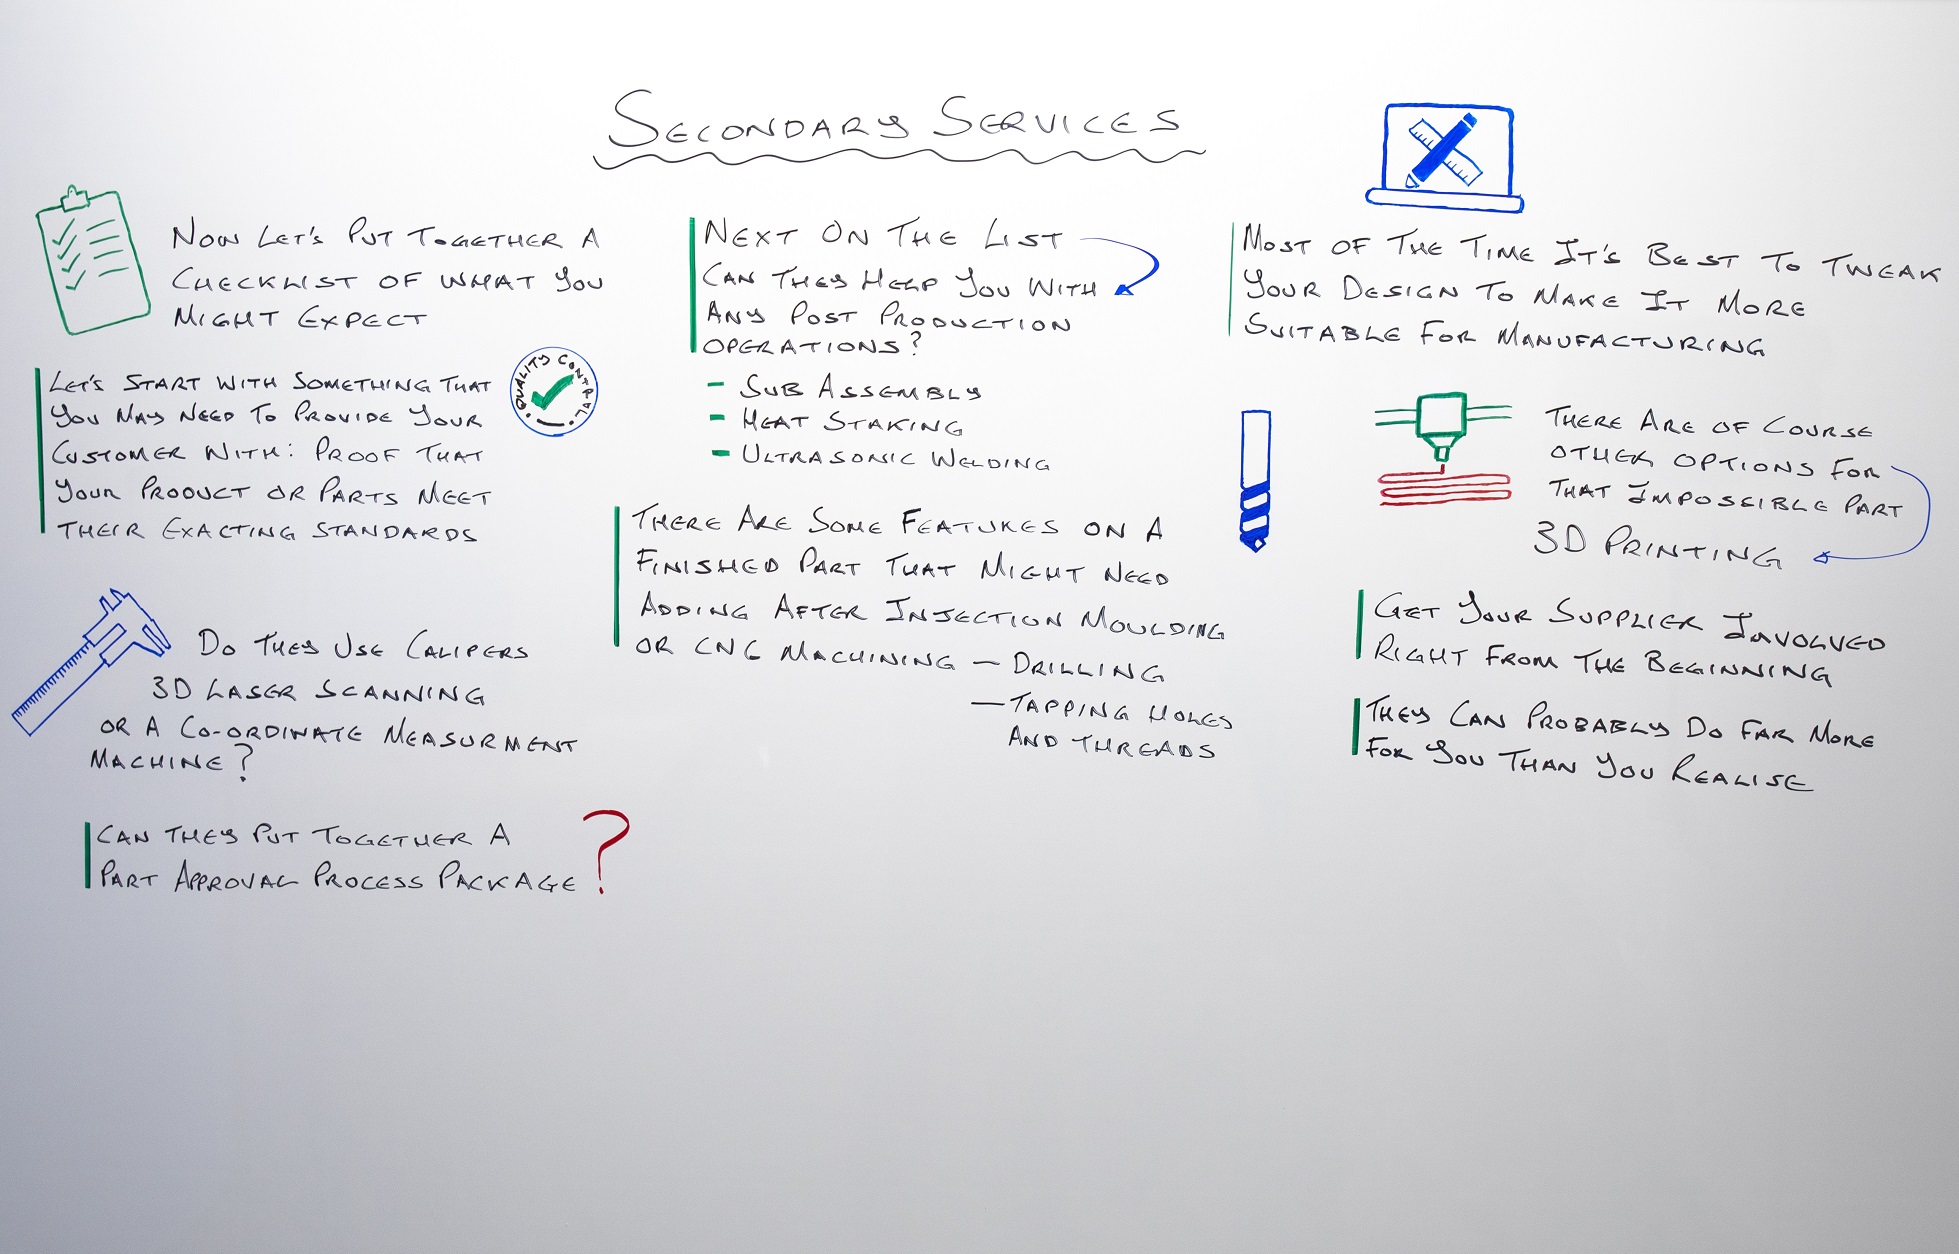 SECONDARY SERVICES
NOW LET'S PUT TOGETHER A
CHECKLIST OF WHAT YOU
MIGHT EXPECT
LET'S START WITH SOMETHING THAT
YOU MAY NEED TO PROVIDE YOUR
CUSTOMER WITH: PROOF THAT
YOUR PRODUCT OR PARTS MEET
THEIR EXACTING STANDARDS
QUALITY CONTROL
DO THEY USE CALIPERS
3D LASER SCANNING
OR A CO-ORDINATE MEASURMENT
MACHINE?
CAN THEY PUT TOGETHER A
PART APPROVAL PROCESS PACKAGE ?
NEXT ON THE LIST
CAN THEY HELP YOU WITH
ANY POST PRODUCTION
OPERATIONS?
- SUB ASSEMBLY
- HEAT STAKING
- ULTRASONIC WELDING
THERE ARE SOME FEATURES ON A
FINISHED PART THAT MIGHT NEED
ADDING AFTER INJECTION MOULDING
OR CNC MACHINING - DRILLING
- TAPPING HOLES
AND THREADS
MOST OF THE TIME IT'S BEST TO TWEAK
YOUR DESIGN TO MAKE IT MORE
SUITABLE FOR MANUFACTURING
THERE ARE OF COURSE
OTHER OPTIONS FOR
THAT IMPOSSIBLE PART
3D PRINTING
GET YOUR SUPPLIER INVOLVED
RIGHT FROM THE BEGINNING
THEY CAN PROBABLY DO FAR MORE
FOR YOU THAN YOU REALISE